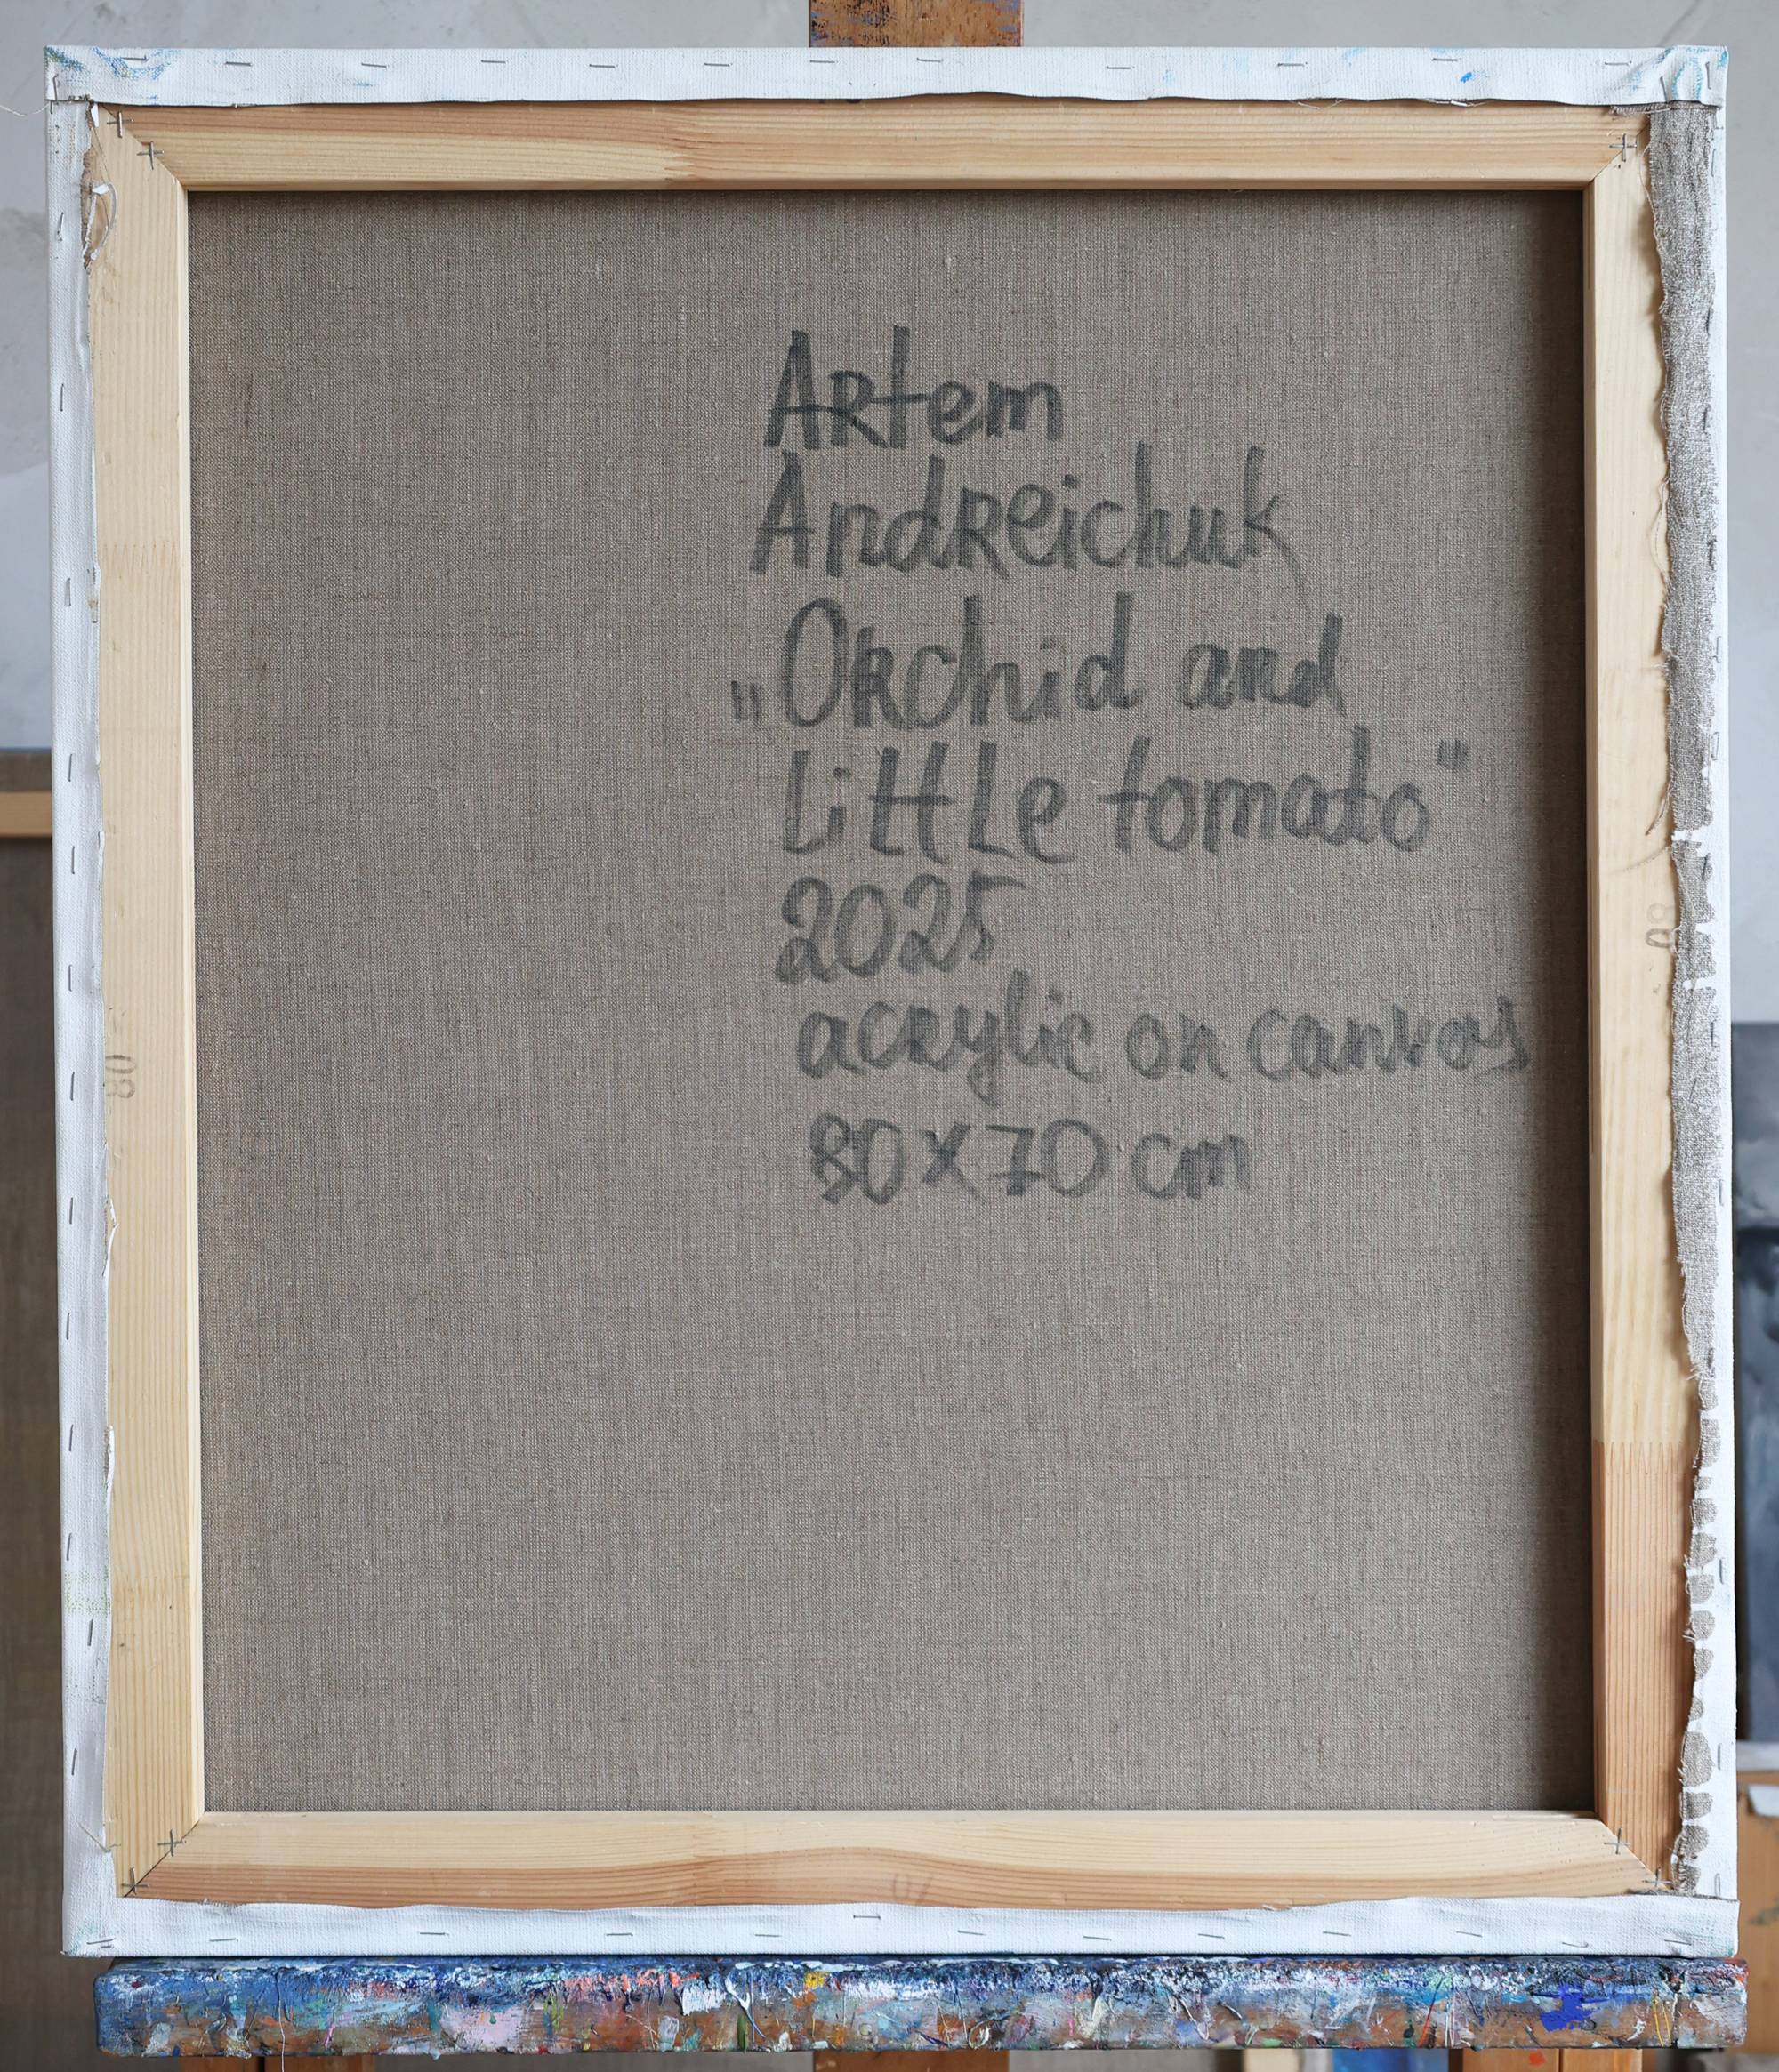 Artem
Andreichuk
„Orchid and
Little tomato"
2025
acrylic on canvas
80x70 cm
80
80
70